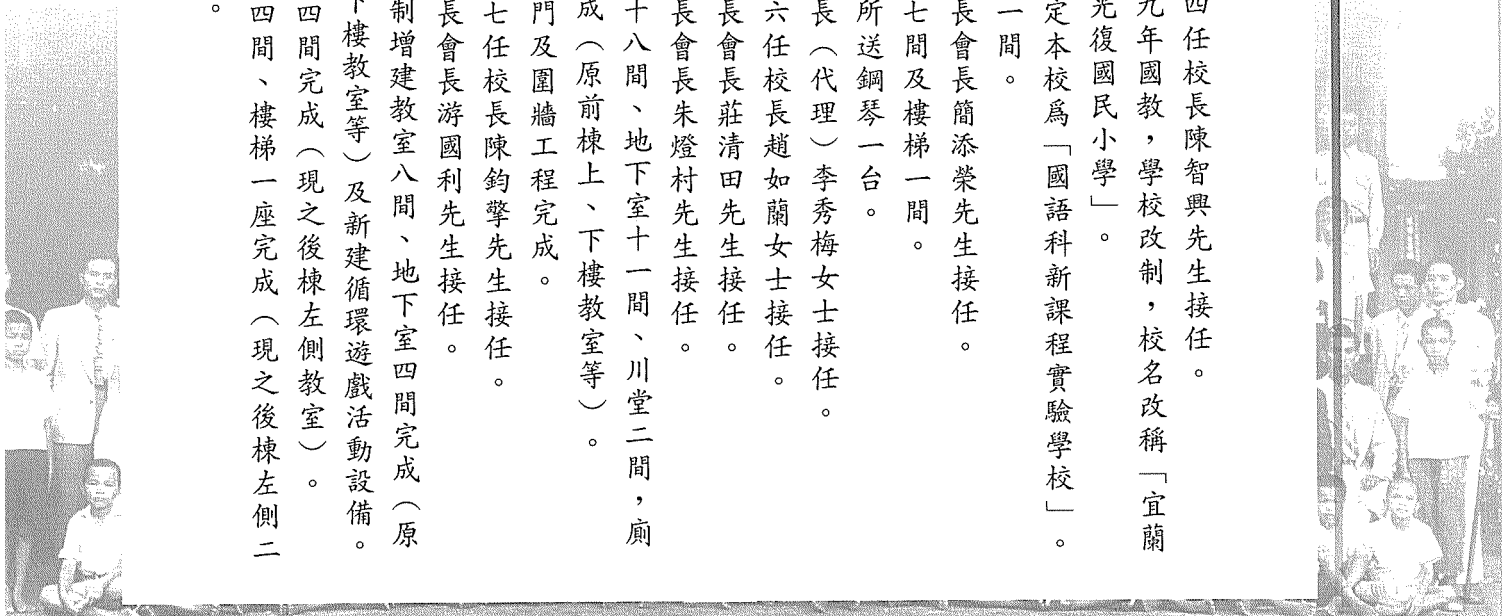 四任校長陳智興先生接任。
九年國教，學校改制，校名改稱「宜蘭
光復國民小學」。
定本校爲「國語科新課程實驗學校」。
一間。
長會長簡添榮先生接任。
七間及樓梯一間。
所送鋼琴一台。
長（代理）李秀梅女士接任。
六任校長趙如蘭女士接任。
長會長莊清田先生接任。
長會長朱燈村先生接任。
十八間、地下室十一間、川堂二間，廁
成（原前棟上、下樓教室等）。
門及圍牆工程完成。
七任校長陳鈞擎先生接任。
長會長游國利先生接任。
制增建教室八間、地下室四間完成（原
下樓教室等）及新建循環遊戲活動設備。
四間完成（現之後棟左側教室）。
四間、樓梯一座完成（現之後棟左側二
。